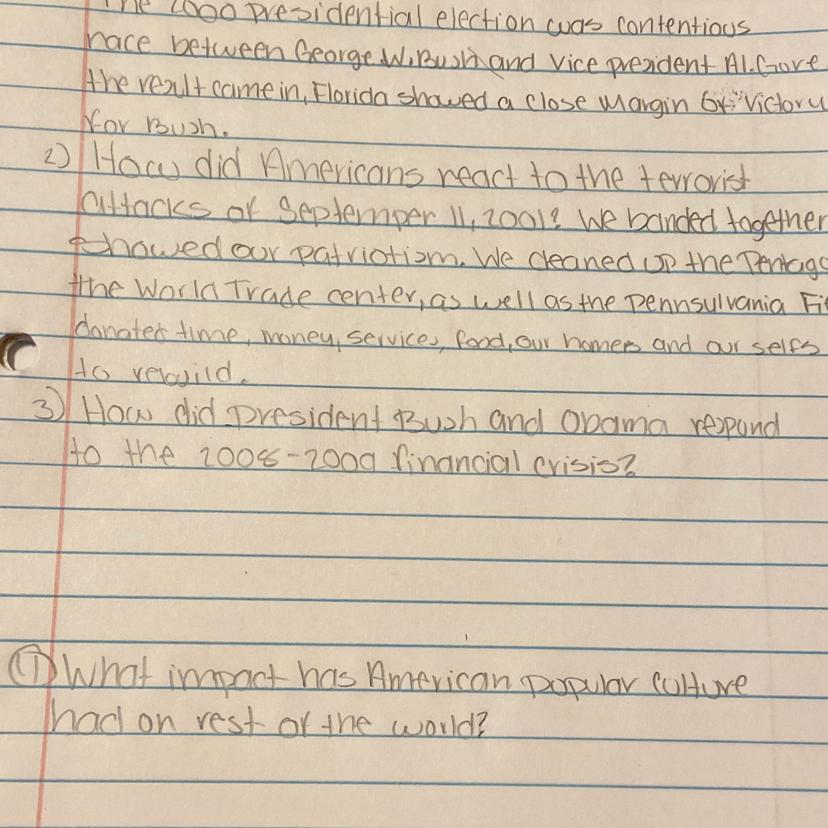 The 2000 presidential election was contentious
race between George W. Bush and Vice president Al. Gore
the result came in, Florida showed a close margin of victory
for Bush.
2) How did Americans react to the terrorist
attacks of Septemper 11, 2001? We banded together
showed our patriotism. We cleaned up the Pentago
the World Trade center, as well as the Pennsulvania Fi
donates time, money, services, food, our homes and our selfs
to rebuild.
3) How did president Bush and Obama respond
to the 2008-2009 financial crisis?
1 What impact has American popular culture
had on rest of the world?